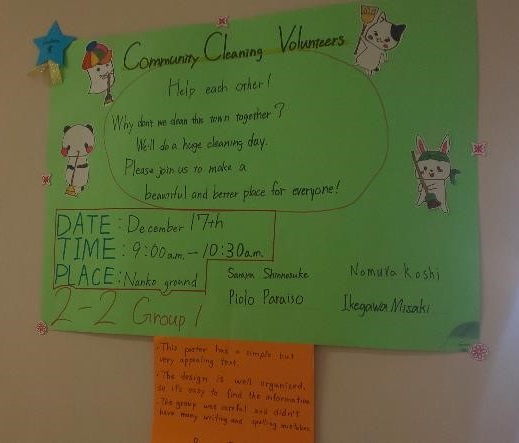 Community Cleaning Volunteers
Help each other!
Why don't we clean this town together?
We'll do a huge cleaning day.
Please join us to make a
beautiful and better place for everyone!
DATE: December 17th
TIME: 9:00a.m. - 10:30a.m.
PLACE: Nanko ground
2-2 Group 1
Shinnosuke
Piolo Paraiso
Nomura Koshi
Ikegawa Misaki
- This poster has a simple but
very appealing text.
- The design is well organised,
so it's easy to find the information
- The group was careful and didn't
have many writing and spelling mistakes.